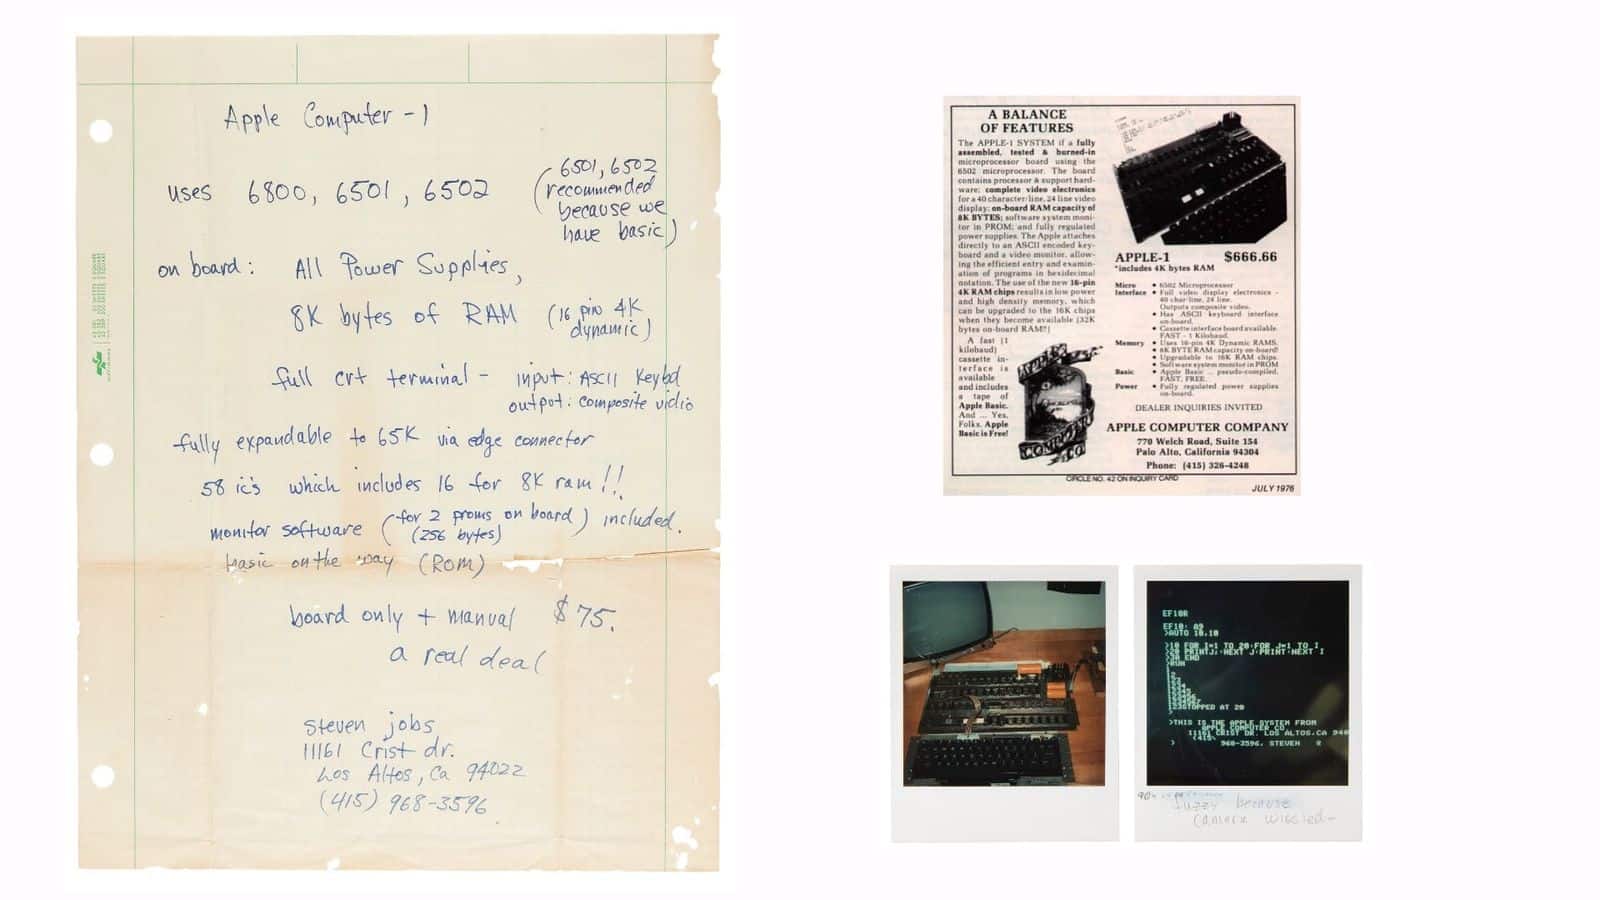 Apple Computer - 1
uses 6800, 6501, 6502
(6501, 6502
recommended
because we
have basic)
on board: All Power Supplies,
8K bytes of RAM (16 pin 4K
dynamic)
full crt terminal - input: ASCII Keybd
output: composite vidio
fully expandable to 65K via edge connector
58 ic's which includes 16 for 8K ram!!
monitor software (for 2 proms on board) included.
(256 bytes)
basic on the way (ROM)
board only + manual $75.
a real deal
steven jobs
11161 Crist dr.
Los Altos, Ca 94022
(415) 968-3596
A BALANCE
OF FEATURES
The APPLE-1 SYSTEM if a fully
assembled, tested & burned-in
microprocessor board using the
6502 microprocessor. The board
contains processor & support hard-
ware; complete video electronics
for a 40 character/line, 24 line video
display; on-board RAM capacity of
8K BYTES; software system moni-
tor in PROM; and fully regulated
power supplies. The Apple attaches
directly to an ASCII encoded key-
board and a video monitor, allow-
ing the efficient entry and examin-
ation of programs in hexidecimal
notation. The use of the new 16-pin
4K RAM chips results in low power
and high density memory, which
can be upgraded to the 16K chips
when they become available (32K
bytes on-board RAM!!)
A fast (1
kilobaud)
cassette in-
terface is
available
and includes
a tape of
Apple Basic.
And ... Yes,
Folks, Apple
Basic is Free!
APPLE
COMPUTER
CO
APPLE-1 $666.66
*includes 4K bytes RAM
Micro • 6502 Microprocessor
Interface • Full video display electronics -
40 char/line, 24 line.
Outputs composite video.
• Has ASCII keyboard interface
on-board.
• Cassette interface board available.
FAST - 1 Kilobaud.
Memory • Uses 16-pin 4K Dynamic RAMS.
• 8K BYTE RAM capacity on-board!
• Upgradable to 16K RAM chips.
• Software system monitor in PROM
Basic • Apple Basic ... pseudo-compiled,
FAST, FREE.
Power • Fully regulated power supplies
on-board.
DEALER INQUIRIES INVITED
APPLE COMPUTER COMPANY
770 Welch Road, Suite 154
Palo Alto, California 94304
Phone: (415) 326-4248
CIRCLE NO. 42 ON INQUIRY CARD
JULY 1976
EF10R
EF10: A9
>AUTO 10,10
>10 FOR I=1 TO 20:FOR J=1 TO I
>20 PRINTJ;:NEXT J:PRINT:NEXT I
>30 END
>RUN
1
12
123
1234
12345
123456
1234567
123STOPPED AT 20
>
>THIS IS THE APPLE SYSTEM FROM
APPLE COMPUTER CO
11161 CRIST DR. LOS ALTOS,CA 940
(415)
> 968-3596, STEVEN
fuzzy because
camera wiggled-